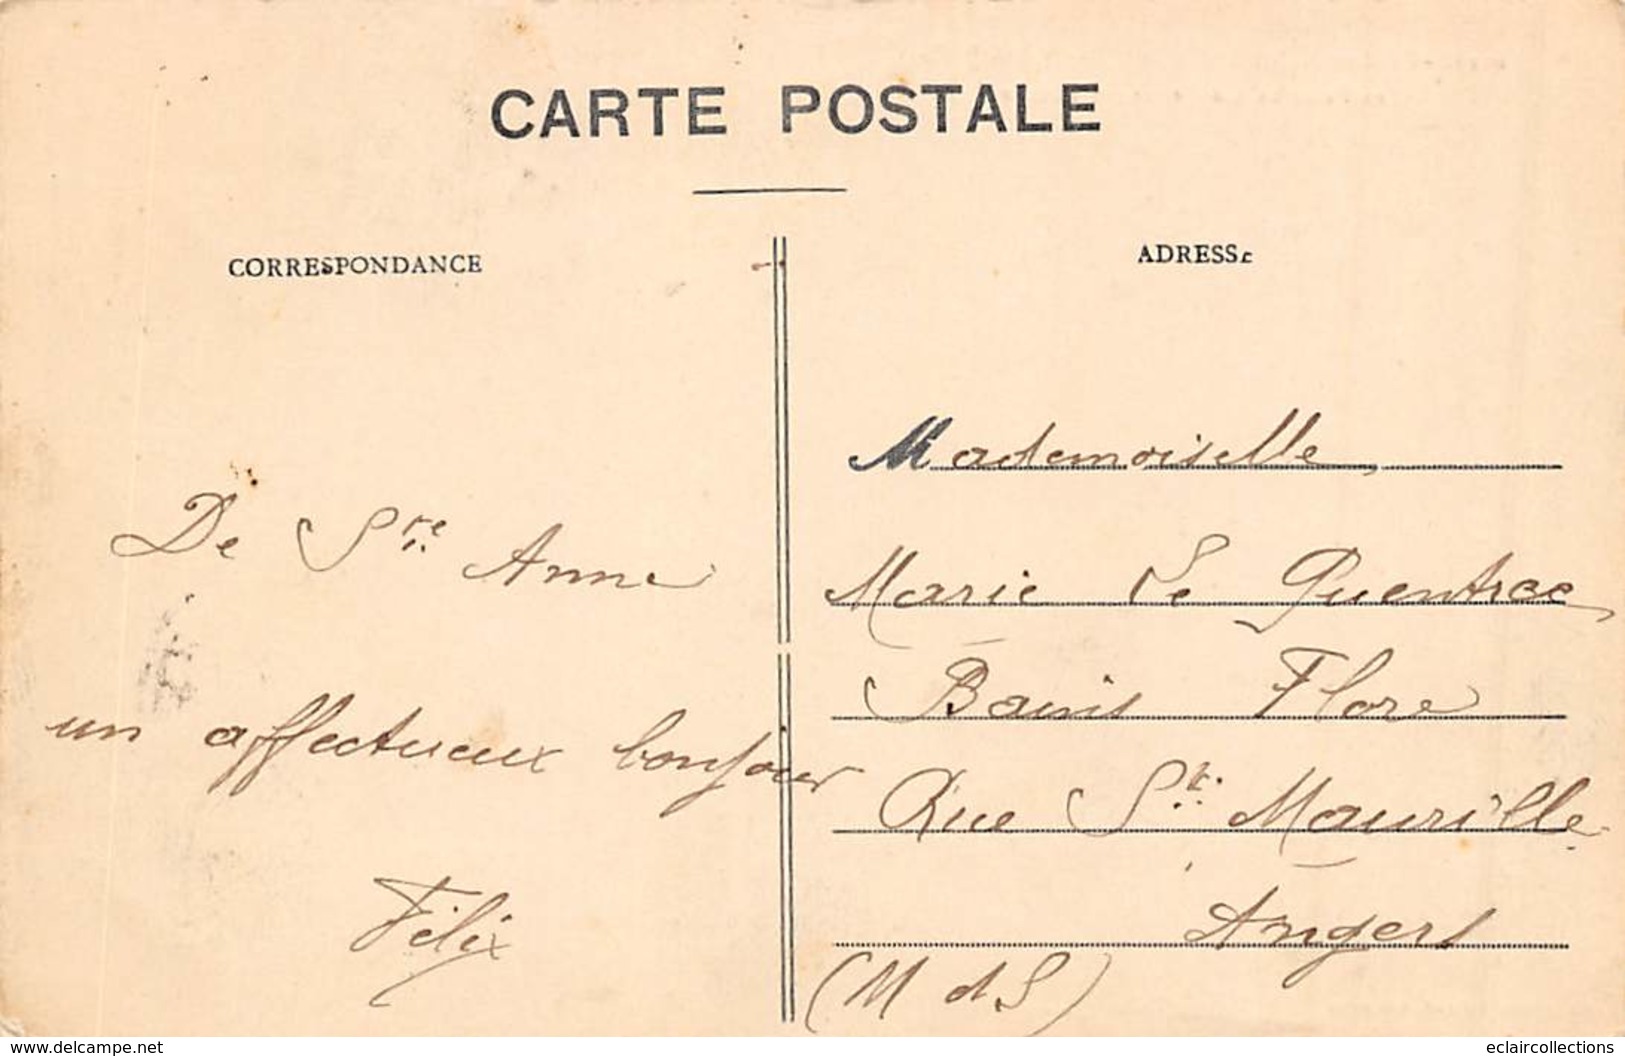 CARTE POSTALE
CORRESPONDANCE
ADRESSE
De Ste Anne
un affectueux bonjour
Félix
Mademoiselle,
Marie Le Quentrec
Bains Flore
Rue St Maurille
Angers
(M d S)
www.delcampe.net
eclaircollections